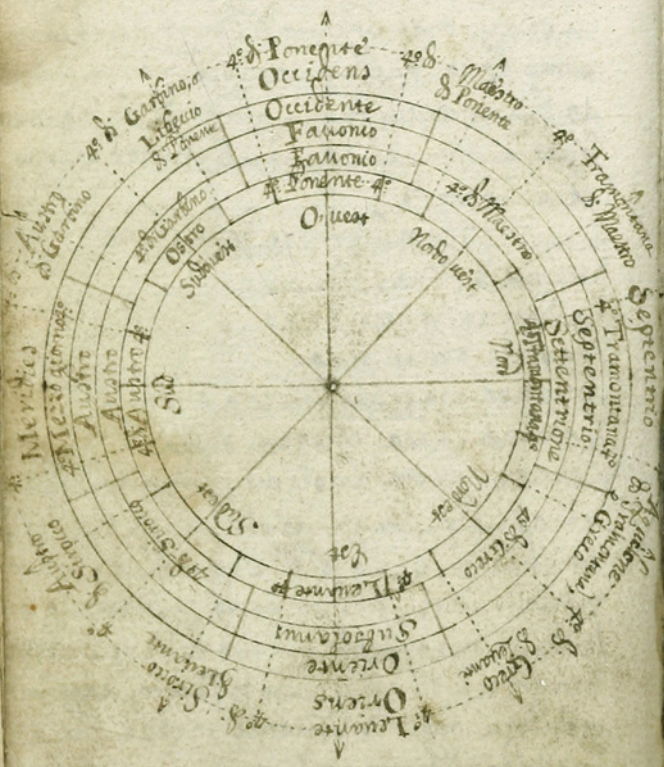 4º di Ponente
4º di
Occidens
Occidente
Fauonio
Fauonio
4º Ponente 4º
Ouest
Maestro
di Ponente
4º di Maestro
Nordouest
4º Tramontana
di Maestro
Septentrio
4º Tramontana 4º
Septentrio
Settentrione
Tramontana 4º
Nord
Aquilone
Tramontana
Greco
4º di Greco
Nordest
4º di
Greco
di Leuante
4º Leuante
4º di
Oriens
Oriente
Subsolanus
4º Leuante 4º
Est
Sirocco
di Leuante
4º di Sirocco
Sudest
4º
Austro
di Sirocco
Meridies
4º Mezzogiorno 4º
Austro
Austro
4º Austro 4º
Sud
Austro
di Garbino
4º di Garbino, o
Libecio
di Ponente
Ostro
Sudouest